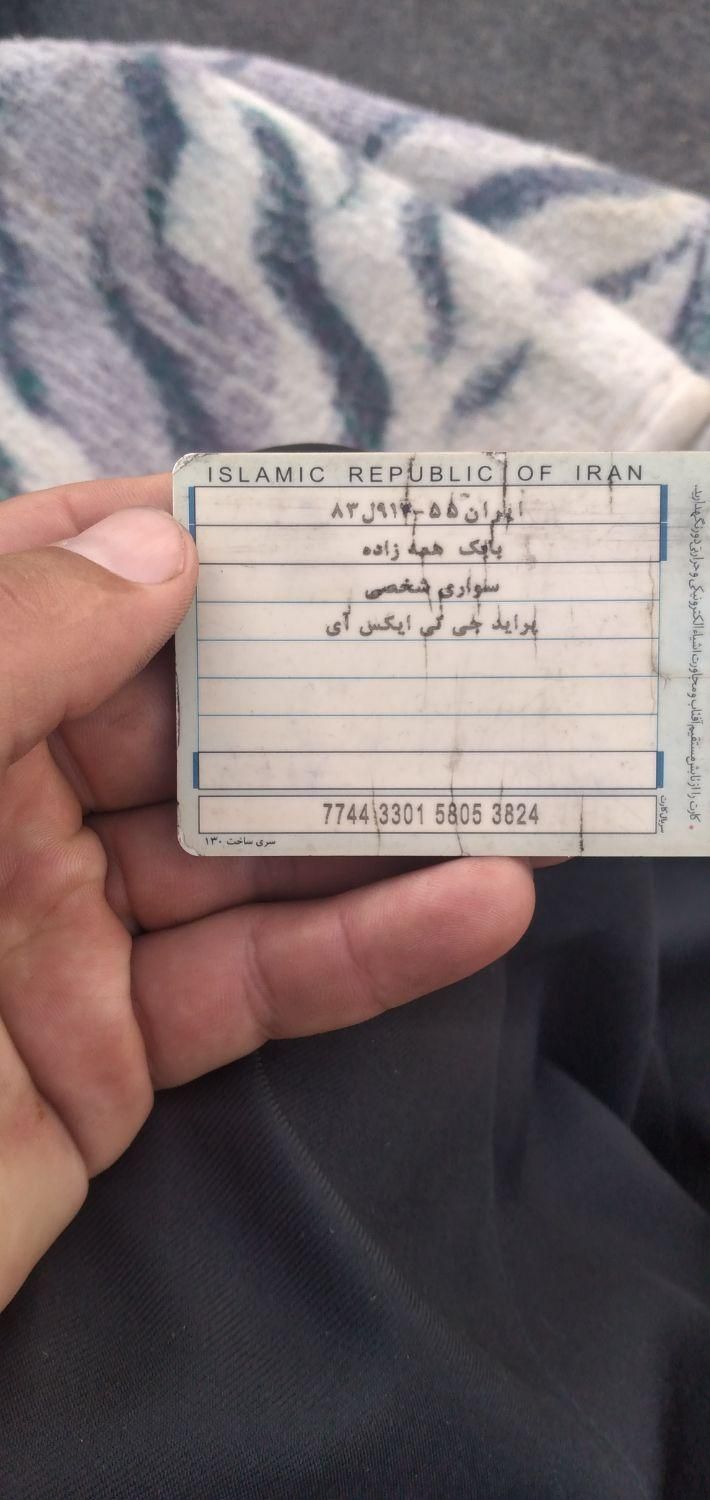 ISLAMIC REPUBLIC OF IRAN
ایران ۵۵-۹۱۳ل۸۳
بابک همه زاده
سواری شخصی
پراید جی تی ایکس آی
7744 3301 5805 3824
سریال کارت
سری ساخت ۱۳۰
* کارت را از تابش مستقیم آفتاب و مجاورت اشیاء الکترونیکی و حرارتی دور نگهدارید.